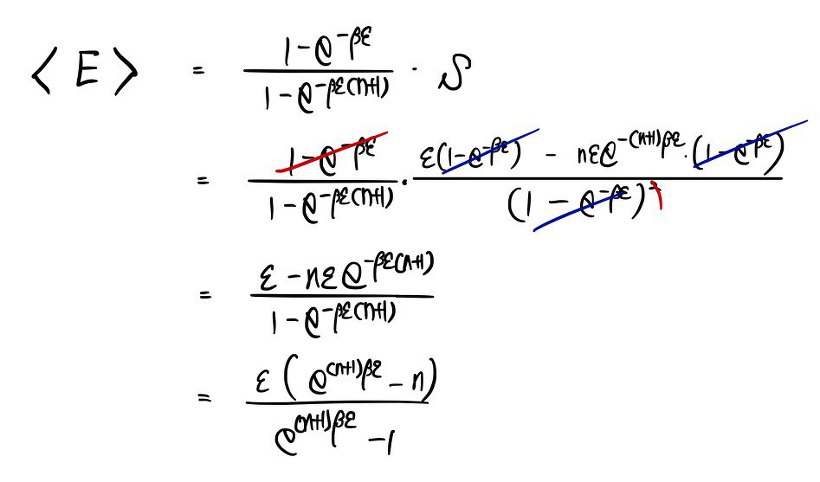 ⟨E⟩ = \frac{1-e^{-βε}}{1-e^{-βε(n+1)}} · S
= \frac{1-e^{-βε}}{1-e^{-βε(n+1)}} · \frac{ε(1-e^{-βε}) - nεe^{-(n+1)βε}·(1-e^{-βε})}{(1-e^{-βε})^{1}}
= \frac{ε-nεe^{-βε(n+1)}}{1-e^{-βε(n+1)}}
= \frac{ε(e^{(n+1)βε}-n)}{e^{(n+1)βε}-1}